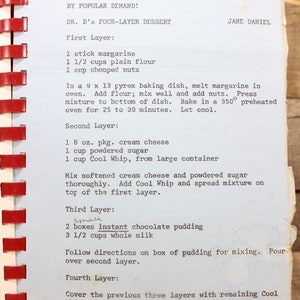 BY POPULAR DEMAND!
DR. D's FOUR-LAYER DESSERT JANE DANIEL
First Layer:
1 stick margarine
1 1/2 cups plain flour
1 cup chopped nuts
In a 9 x 13 pyrex baking dish, melt margarine in
oven. Add flour; mix well and add nuts. Press
mixture to bottom of dish. Bake in a 350° preheated
oven for 25 to 30 minutes. Let cool.
Second Layer:
1 8 oz. pkg. cream cheese
1 cup powdered sugar
1 cup Cool Whip, from large container
Mix softened cream cheese and powdered sugar
thoroughly. Add Cool Whip and spread mixture on
top of the first layer.
Third Layer:
small
2 boxes instant chocolate pudding
3 1/2 cups whole milk
Follow directions on box of pudding for mixing. Pour
over second layer.
Fourth Layer:
Cover the previous three layers with remaining Cool